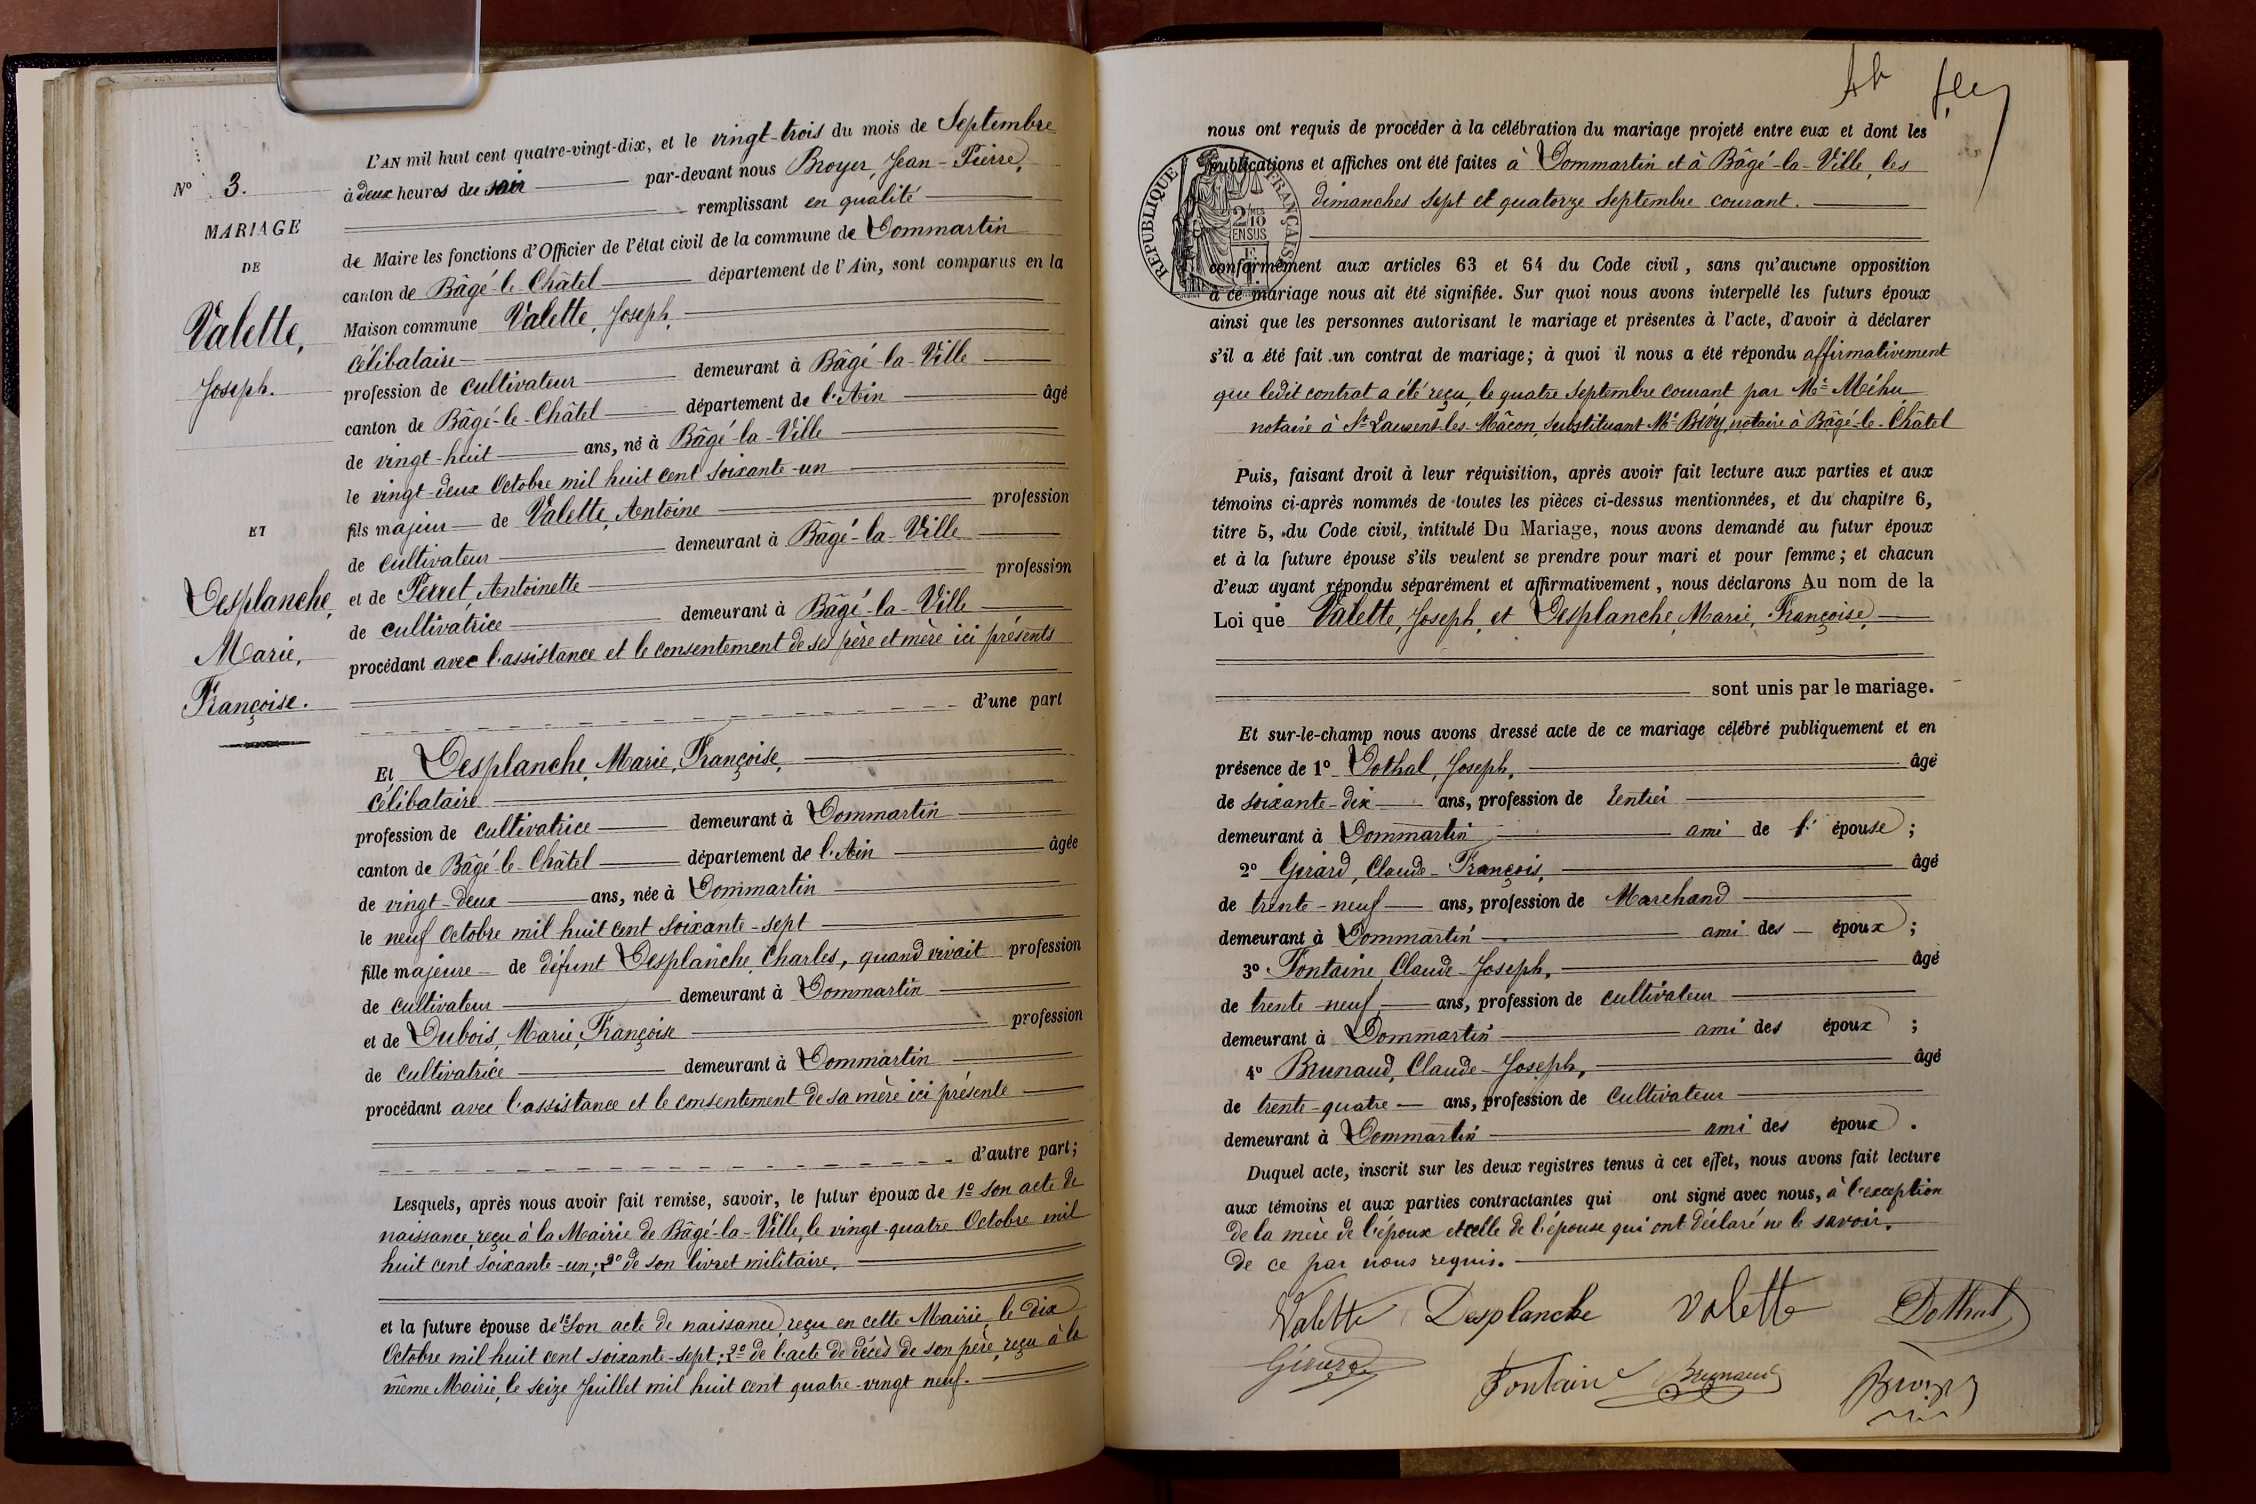 N° 3.
MARIAGE
DE
Valette,
Joseph.
ET
Desplanche,
Marie,
Françoise.
L'AN mil huit cent quatre-vingt-dix, et le vingt-trois du mois de Septembre
à deux heures du soir par-devant nous Broyer, Jean-Pierre,
remplissant en qualité
de Maire les fonctions d'Officier de l'état civil de la commune de Dommartin
canton de Bâgé-le-Châtel département de l'Ain, sont comparus en la
Maison commune Valette, Joseph,
célibataire
profession de cultivateur demeurant à Bâgé-la-Ville
canton de Bâgé-le-Châtel département de l'Ain âgé
de vingt-huit ans, né à Bâgé-la-Ville
le vingt-deux Octobre mil huit cent soixante-un
fils majeur de Valette, Antoine profession
de cultivateur demeurant à Bâgé-la-Ville
et de Perret, Antoinette profession
de cultivatrice demeurant à Bâgé-la-Ville
procédant avec l'assistance et le consentement de ses père et mère ici présents
d'une part
Et Desplanche, Marie, Françoise,
célibataire
profession de cultivatrice demeurant à Dommartin
canton de Bâgé-le-Châtel département de l'Ain âgée
de vingt-deux ans, née à Dommartin
le neuf Octobre mil huit cent soixante-sept
fille majeure de défunt Desplanche, Charles, quand vivait profession
de cultivateur demeurant à Dommartin
et de Dubois, Marie, Françoise profession
de cultivatrice demeurant à Dommartin
procédant avec l'assistance et le consentement de sa mère ici présente
d'autre part;
Lesquels, après nous avoir fait remise, savoir, le futur époux de 1° son acte de
naissance, reçu à la Mairie de Bâgé-la-Ville, le vingt-quatre Octobre mil
huit cent soixante-un; 2° de son livret militaire.
et la future épouse de 1° son acte de naissance, reçu en cette Mairie, le dix
Octobre mil huit cent soixante-sept; 2° de l'acte de décès de son père, reçu à la
même Mairie, le seize Juillet mil huit cent quatre-vingt neuf.
nous ont requis de procéder à la célébration du mariage projeté entre eux et dont les
publications et affiches ont été faites à Dommartin et à Bâgé-la-Ville, les
dimanches sept et quatorze Septembre courant.
REPUBLIQUE FRANÇAISE
2/10 EN SUS
conformément aux articles 63 et 64 du Code civil, sans qu'aucune opposition
à ce mariage nous ait été signifiée. Sur quoi nous avons interpellé les futurs époux
ainsi que les personnes autorisant le mariage et présentes à l'acte, d'avoir à déclarer
s'il a été fait un contrat de mariage; à quoi il nous a été répondu affirmativement
que ledit contrat a été reçu, le quatre Septembre courant par Me Méhu
notaire à St Laurent-les-Mâcon, substituant Me Bévy, notaire à Bâgé-le-Châtel
Puis, faisant droit à leur réquisition, après avoir fait lecture aux parties et aux
témoins ci-après nommés de toutes les pièces ci-dessus mentionnées, et du chapitre 6,
titre 5, du Code civil, intitulé Du Mariage, nous avons demandé au futur époux
et à la future épouse s'ils veulent se prendre pour mari et pour femme; et chacun
d'eux ayant répondu séparément et affirmativement, nous déclarons Au nom de la
Loi que Valette, Joseph, et Desplanche, Marie, Françoise,
sont unis par le mariage.
Et sur-le-champ nous avons dressé acte de ce mariage célébré publiquement et en
présence de 1° Dothal, Joseph, âgé
de soixante-dix ans, profession de rentier
demeurant à Dommartin ami de l' épouse;
2° Girard, Claude-François, âgé
de trente-neuf ans, profession de Marchand
demeurant à Dommartin ami des époux;
3° Fontaine, Claude-Joseph, âgé
de trente-neuf ans, profession de cultivateur
demeurant à Dommartin ami des époux;
4° Brunaud, Claude-Joseph, âgé
de trente-quatre ans, profession de cultivateur
demeurant à Dommartin ami des époux.
Duquel acte, inscrit sur les deux registres tenus à cet effet, nous avons fait lecture
aux témoins et aux parties contractantes qui ont signé avec nous, à l'exception
de la mère de l'époux et celle de l'épouse qui ont déclaré ne le savoir,
de ce par nous requis.
Valette Desplanche Valette Dothal
Girard Fontaine Brunaud Broyer